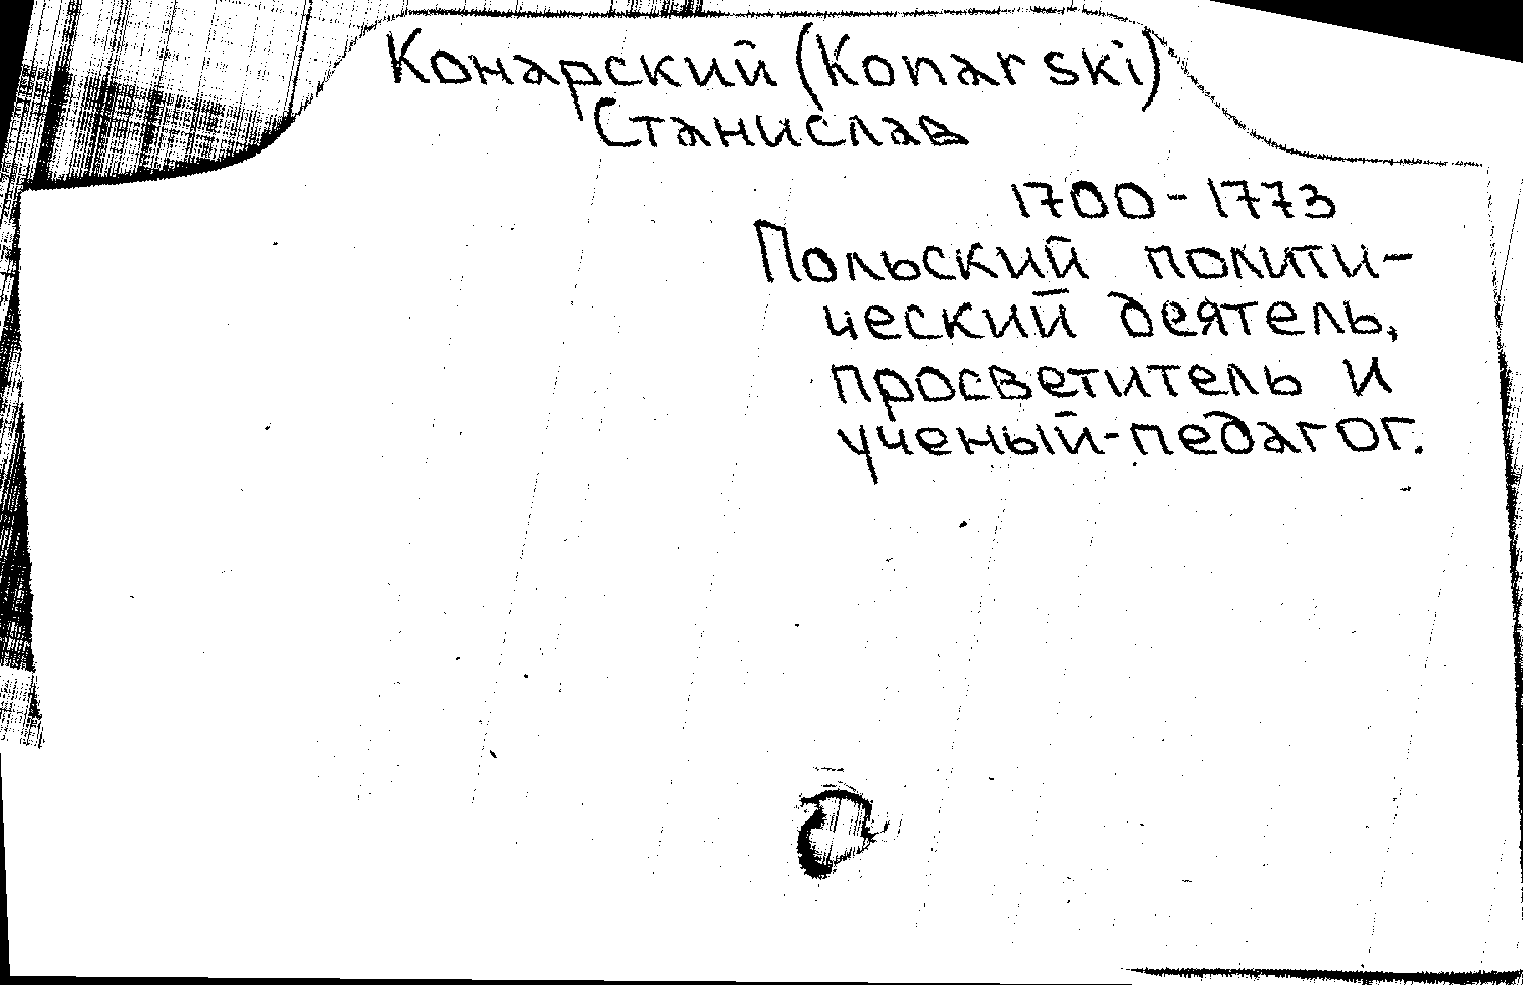 Конарский (Konarski)
Станислав
1700-1773
Польский полити-
ческий деятель,
просветитель и
ученый-педагог.